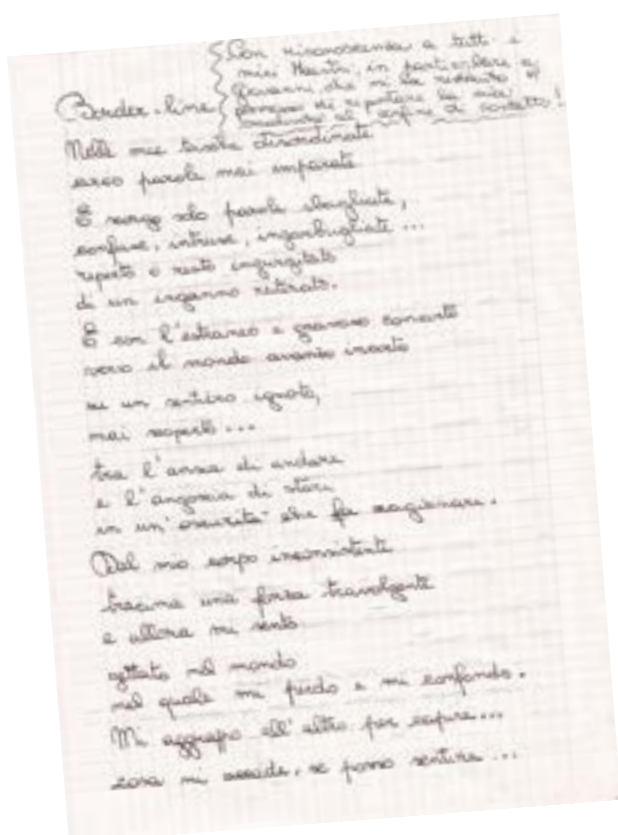 Border-line
Con riconoscenza a tutti i
miei Maestri, in particolare a
Giovanni, che mi ha
permesso di riportare la mia
al confine di contatto!
Nelle mie tasche disordinate
cerco parole mai imparate
E scorgo solo parole sbagliate,
confuse, intruse, ingarbugliate...
reperto o resto ingurgitato
di un inganno retinato.
E con l'estraneo e gravoso
verso il mondo avanzo incerto
su un sentiero ignoto,
mai scoperto...
tra l'ansia di andare
e l'angoscia di stare
in un'oscurità che fa ragionare.
Dal mio corpo inconsistente
tracima una forza travolgente
e allora mi sento
gettato nel mondo
nel quale mi perdo e mi confondo.
Mi aggrappo all'altro per capire...
cosa mi accade, se posso sentire...